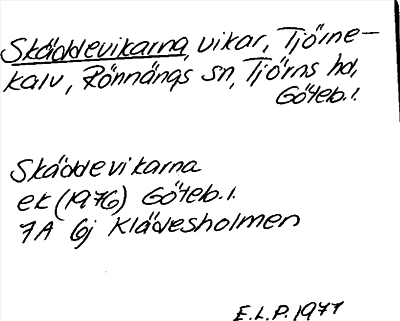 Skäddevikarna, vikar, Tjörne-
kalv, Rönnängs sn, Tjörns hd,
Göteb. l.
Skäddevikarna
ek (1976) Göteb. l.
7A 6j Klädesholmen
E.L.P. 1977